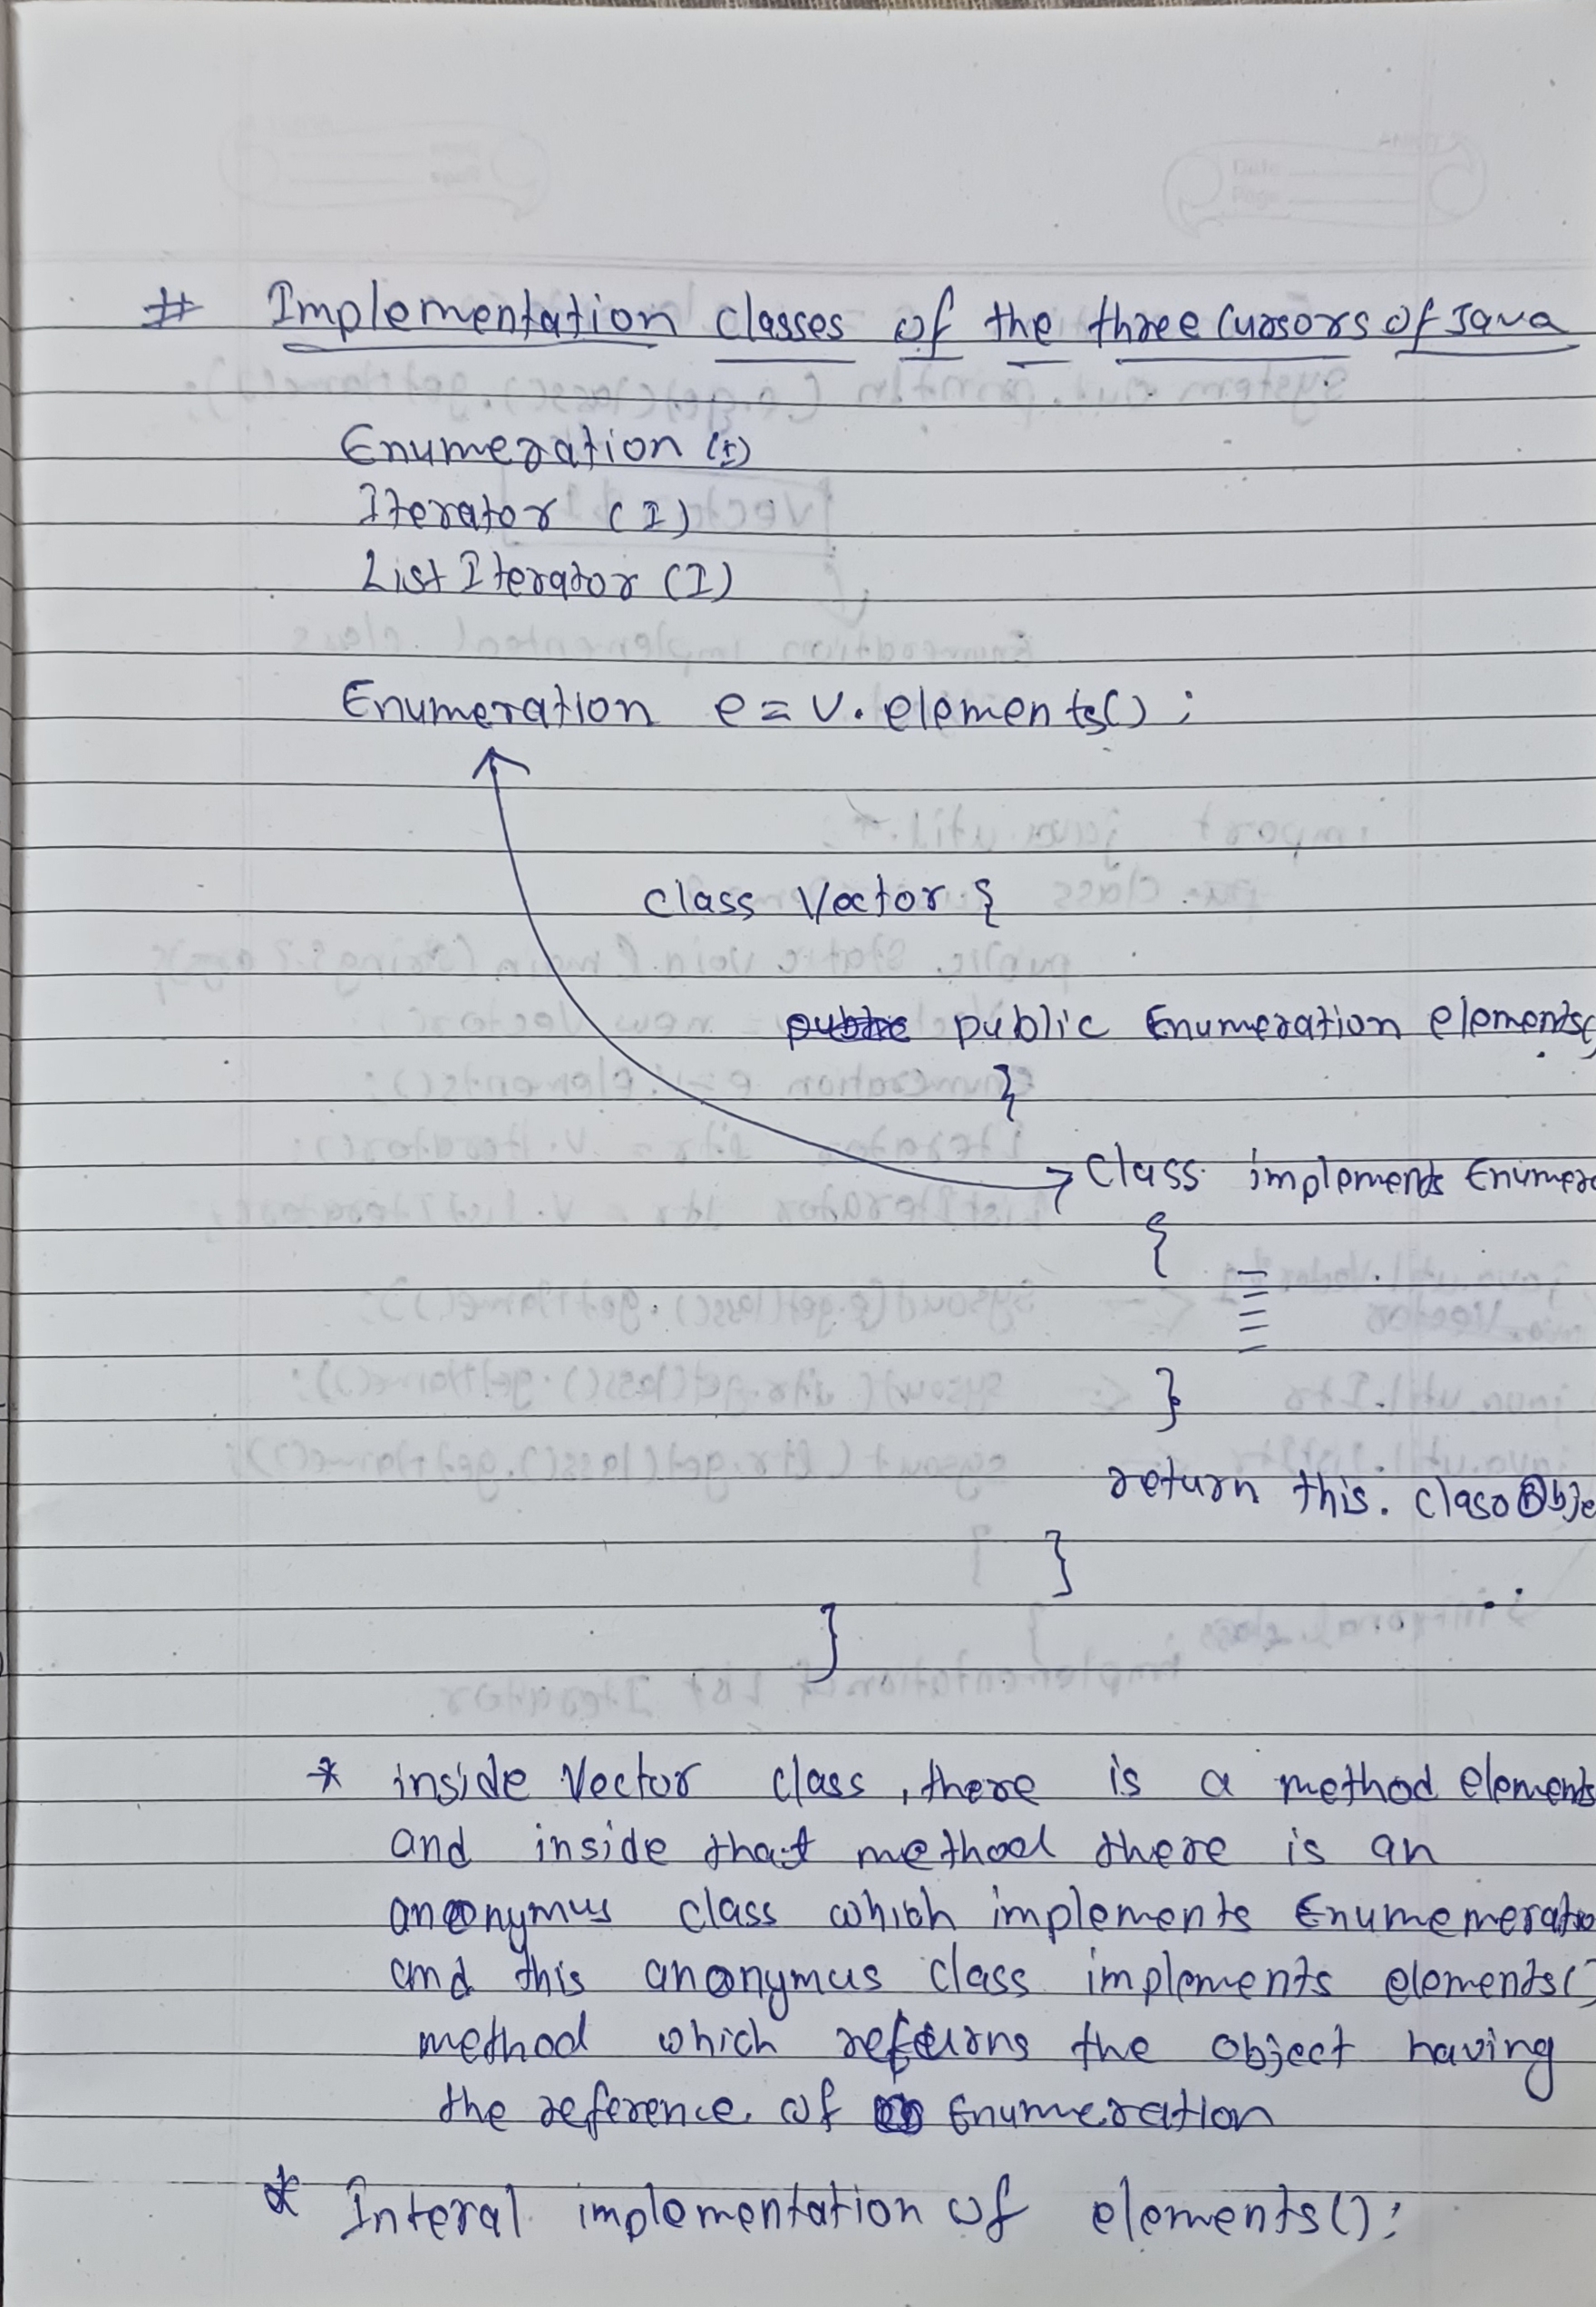 # Implementation classes of the three Cursors of Java
Enumeration (I)
Iterator (I)
ListIterator (I)
Enumeration e = v.elements();
class Vector {
public public Enumeration elements(
}
class implements Enumer
{
}
return this. class Obje
}
}
* inside Vector class, there is a method elements
and inside that method there is an
anonymus class which implements Enumemeratio
and this anonymus class implements elements()
method which returns the object having
the reference of Enumeration
* Interal implementation of elements():